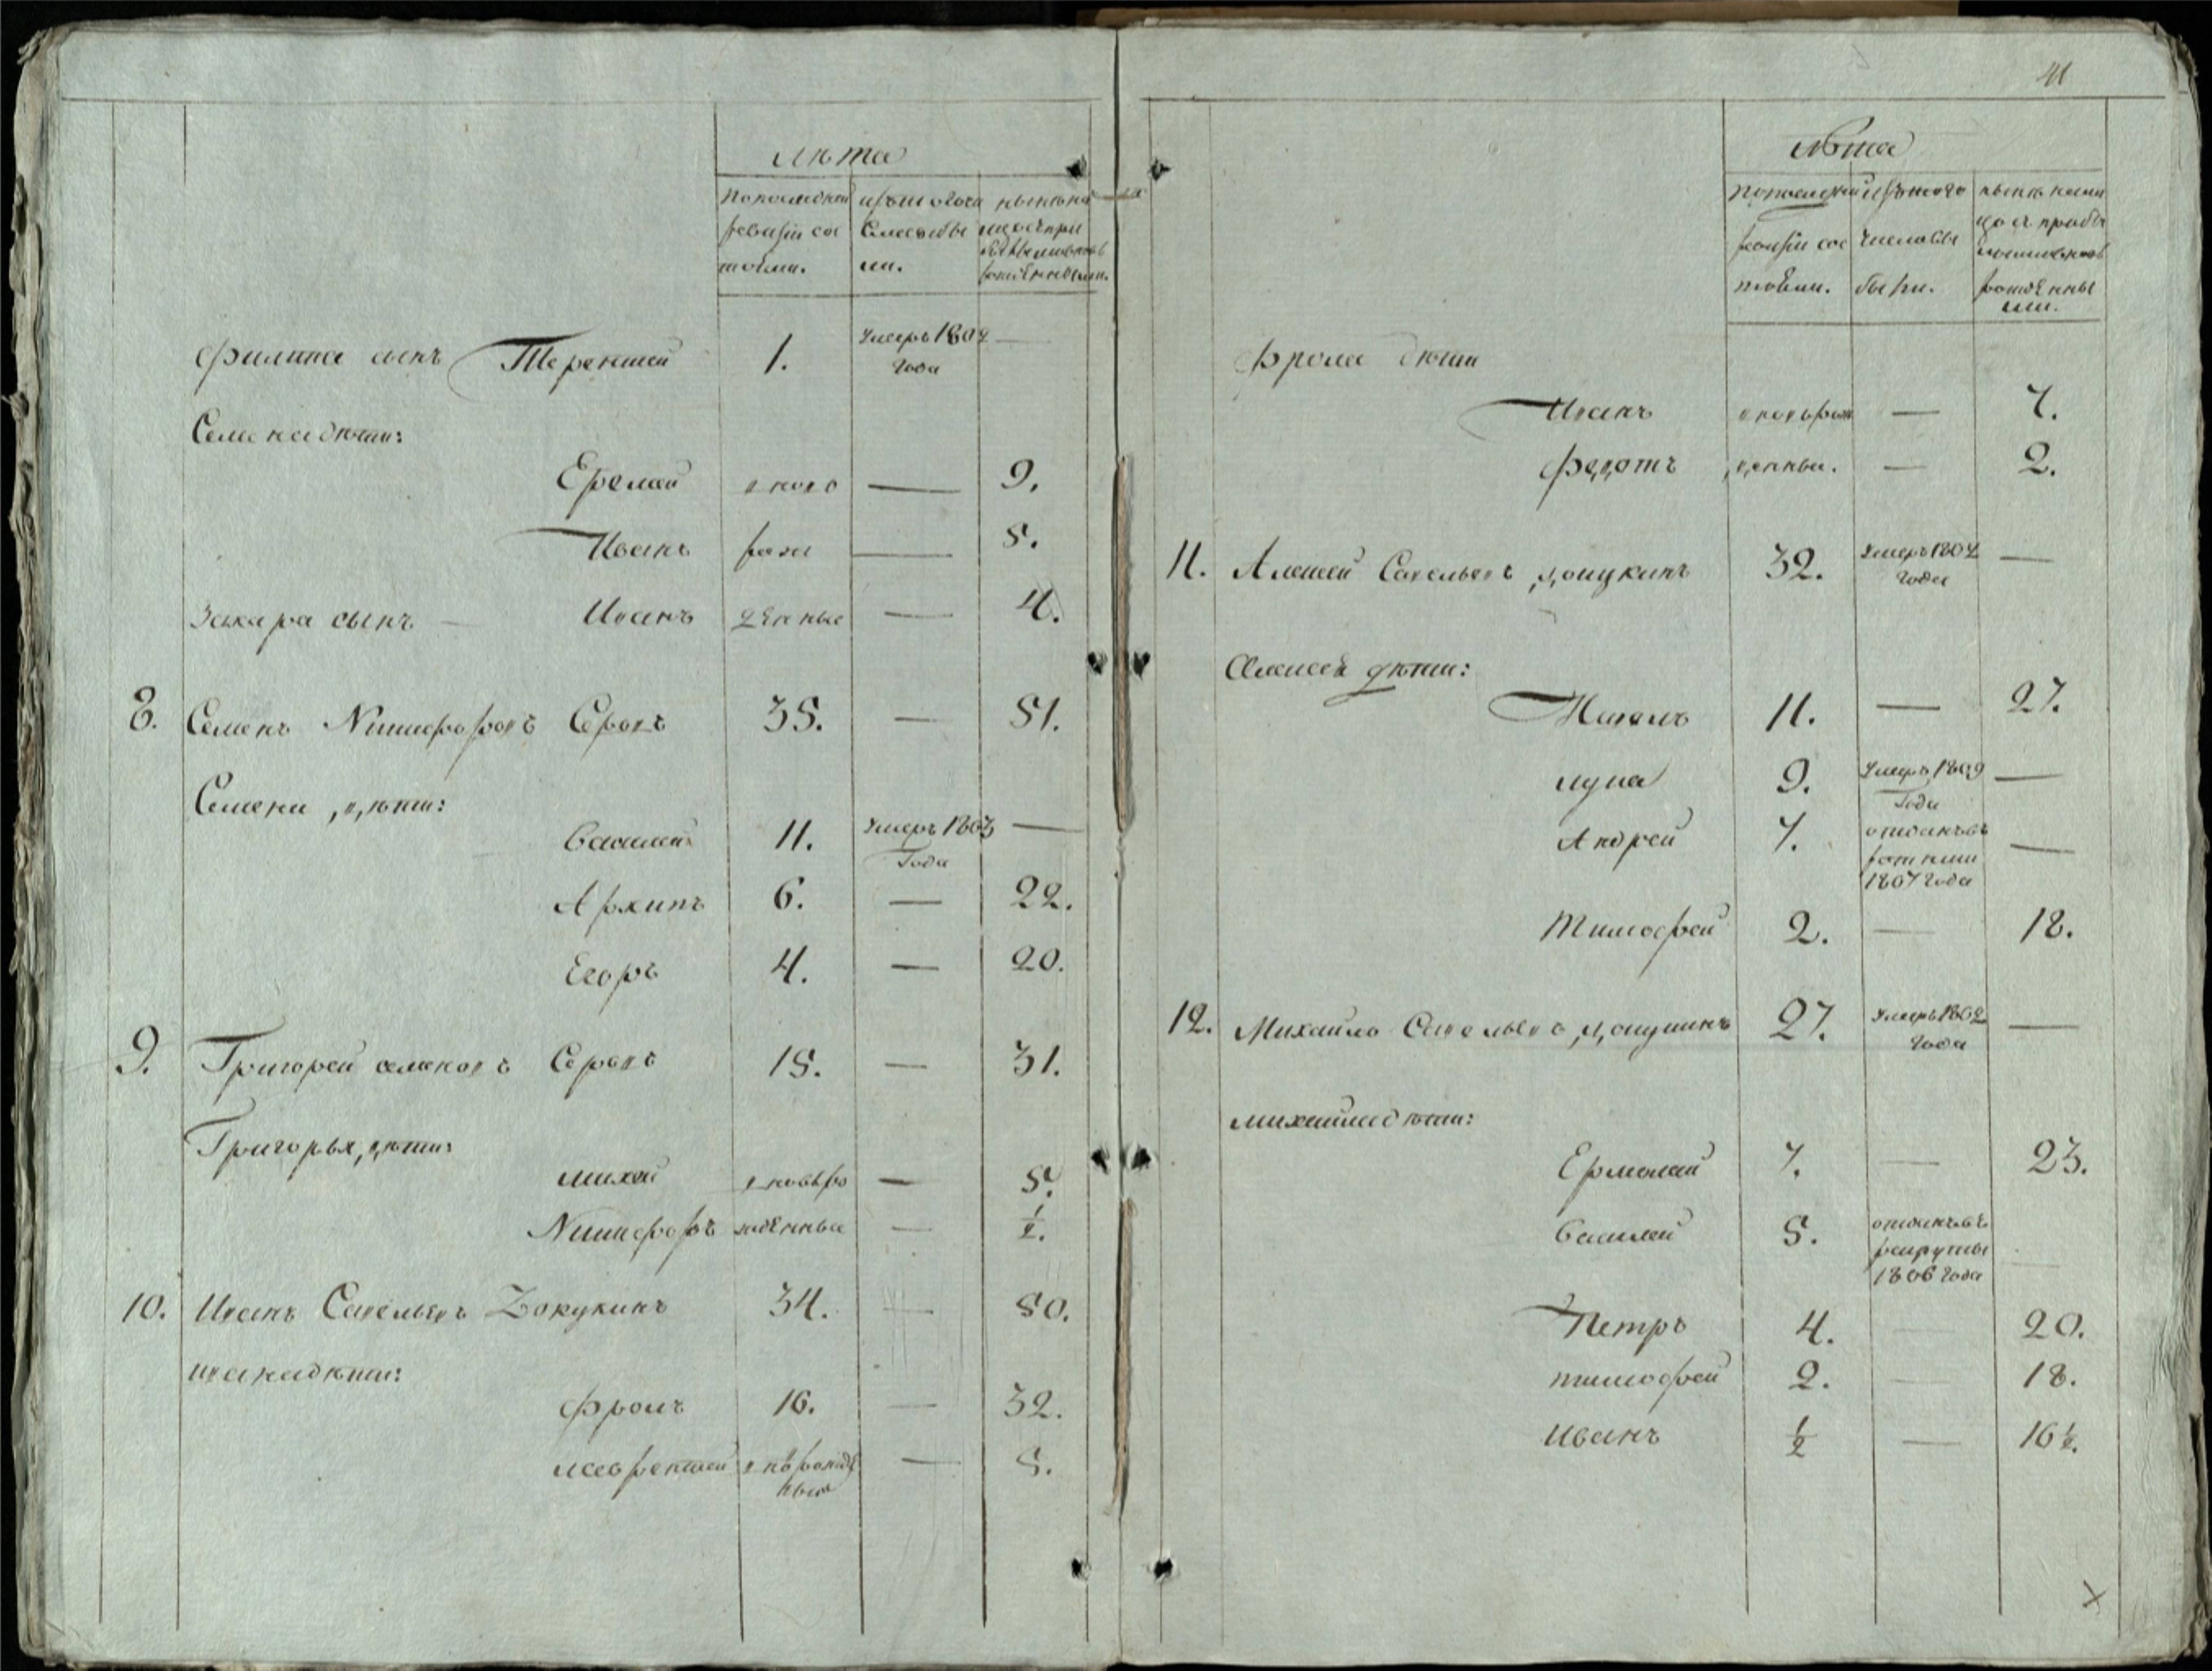 лѣта
по последней ревизіи состояли.
изъ того числа выбыли.
нынѣ на лицо съ прибылыми вновь рожденными.
Филипа сынъ Терентей 1. умеръ 1802 года —
Семена дѣти:
Еремей вново — 9.
Иванъ рож — 5.
Захара сынъ — Иванъ денные — 4.
8. Семенъ Никифоровъ Серовъ 35. — 51.
Семена дѣти:
Василей 11. умеръ 1803 года —
Архипъ 6. — 22.
Егоръ 4. — 20.
9. Григорей семеновъ Серовъ 15. — 31.
Григорья дѣти:
михей вновь ро — 5.
Никифоръ жденные — 1/2.
10. Иванъ Савельевъ 34. — 50.
ивана дѣти:
фролъ 16. — 32.
лаврентей внѣ рожденыи — 5.
41
лѣта
по последней ревизіи состояли.
изъ того числа выбыли.
нынѣ налицо съ прибылыми вновь рожденными.
Фрола дѣти
Иванъ вновь рож — 7.
федотъ денные. — 2.
11. Алексей Савельевъ 32. умеръ 1802 года —
Алексея дѣти:
11. — 27.
лука 9. умеръ 1809 года —
Андрей 7. отданъ въ 1807 года —
Тимофей 2. — 18.
12. Михайло Савельевъ 27. умеръ 1802 года —
михайла дѣти:
Ермолай 7. — 23.
Василей 5. отданъ въ рекруты 1806 года —
Петръ 4. — 20.
тимофей 2. — 18.
Иванъ 1/2 — 16 1/2.